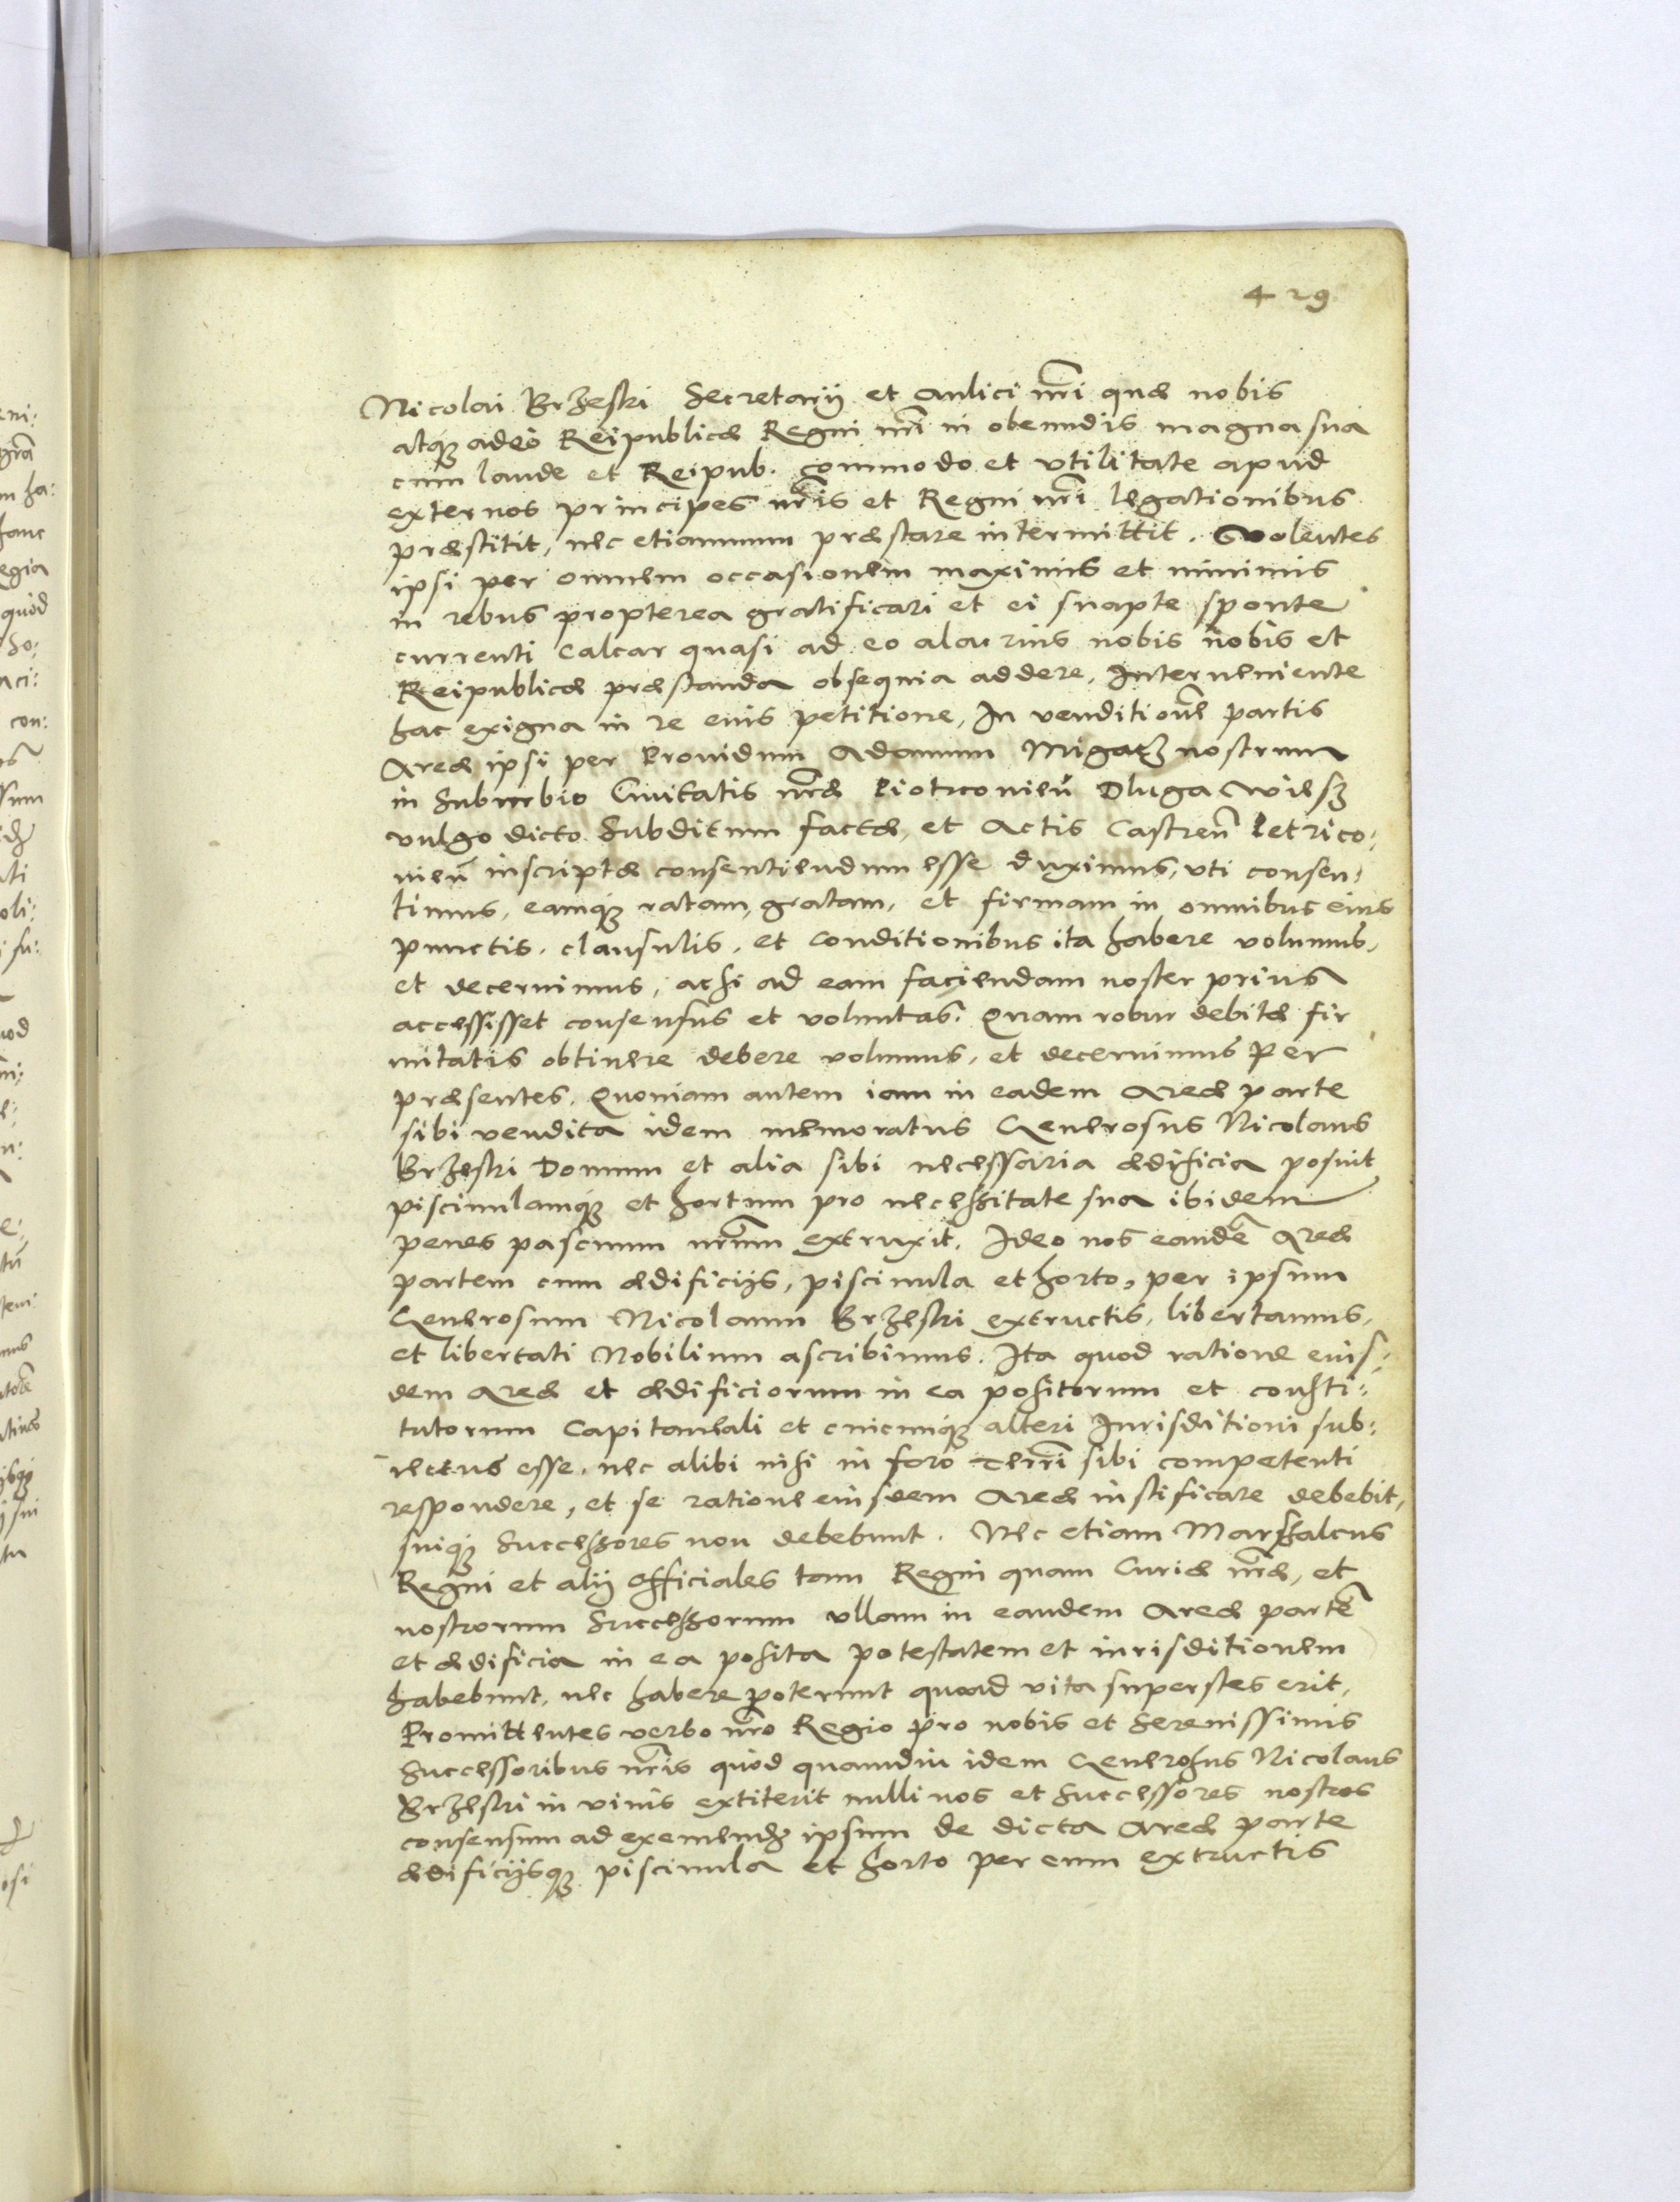 429
Nicolai Brzeski Secretarij et Aulici nr̃i quæ nobis
atq̃ꝫ adeo Reipublicæ Regni nr̃i in obeundis magna sua
cum laude et Reipub. commodo et utilitate apud
externos principes nr̃is et Regni nr̃i legationibus
præstitit, nec etiamnum præstare intermittit. Volentes
ipsi per omnem occasionem maximis et minimis
in rebus propterea gratificari et ei suapte sponte
currenti calcar quasi ad eo alacrius nobis nobis et
Reipublicæ præstanda obsequia addere, Interueniente
hac exigua in re eius petitione, In venditionẽ partis
Areæ ipsi per Prouidum Adamum Migacz nostrum
in Suburbio Ciuitatis nr̃æ Piotrcovieñ Dluga Wiesz
vulgo dicto Subditum factæ, et Actis Castreñ Petrico:
uieñ inscriptæ consentiendum esse duximus, uti consen:
timus, eamq̃ꝫ ratam, gratam, et firmam in omnibus eius
punctis, clausulis, et conditionibus ita habere volumus,
et decernimus, ac si ad eam faciendam noster prius
accessisset consensus et voluntas. Quam robur debitæ fir
mitatis obtinere debere volumus, et decernimus per
præsentes. Quoniam autem iam in eadem Areæ parte
sibi vendita idem memoratus Generosus Nicolaus
Brzeski Domum et alia sibi necessaria ædificia posuit
piscinulamq̃ꝫ et hortum pro necessitate sua ibidem
penes pascuum nr̃um extruxit. Ideo nos eandẽ Areæ
partem cum ædificijs, piscinula et horto, per ipsum
Generosum Nicolaum Brzeski extructis, libertamus,
et libertati Nobilium ascribimus. Ita quod ratione eius:
dem Areæ et ædificiorum in ea positorum et consti:
tutorum Capitaneali et cuicunq̃ꝫ alteri Iurisditioni sub:
iectus esse, nec alibi nisi in foro Terr̃i sibi competenti
respondere, et se ratione eiusdem Areæ iustificare debebit,
suiq̃ꝫ Successores non debebunt. Nec etiam Marsalcus
Regni et alij Officiales tam Regni quam Curiæ nr̃æ, et
nostrorum Successorum ullam in eandem Areæ partẽ
et ædificia in ea posita potestatem et iurisditionem
habebunt, nec habere poterunt quoad vita superstes erit,
Promittentes verbo nr̃o Regio pro nobis et Serenissimis
Successoribus nr̃is quod quamdiu idem Generosus Nicolaus
Brzeski in viuis extiterit nulli nos et Successores nostros
consensum ad exemendꝫ ipsum de dicta Areæ parte
ædificijsq̃ꝫ piscinula et horto per eum extructis